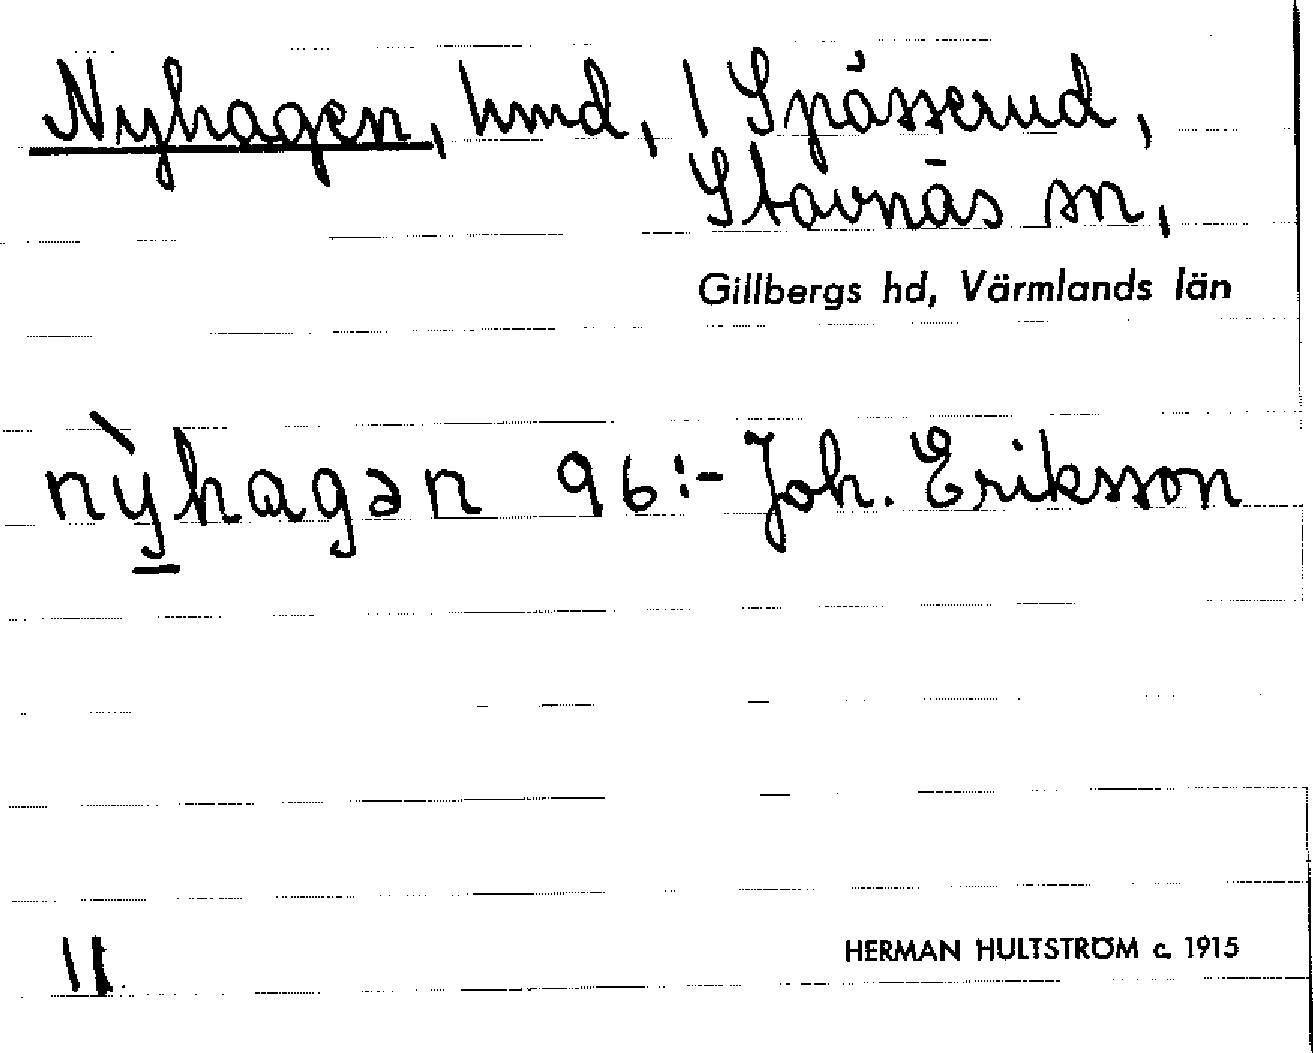 Nyhagen, hmd, 1 Spässerud,
Stavnäs sn,
Gillbergs hd, Värmlands län
nỳhagən 96:- Joh. Eriksson
11.
HERMAN HULTSTRÖM c. 1915